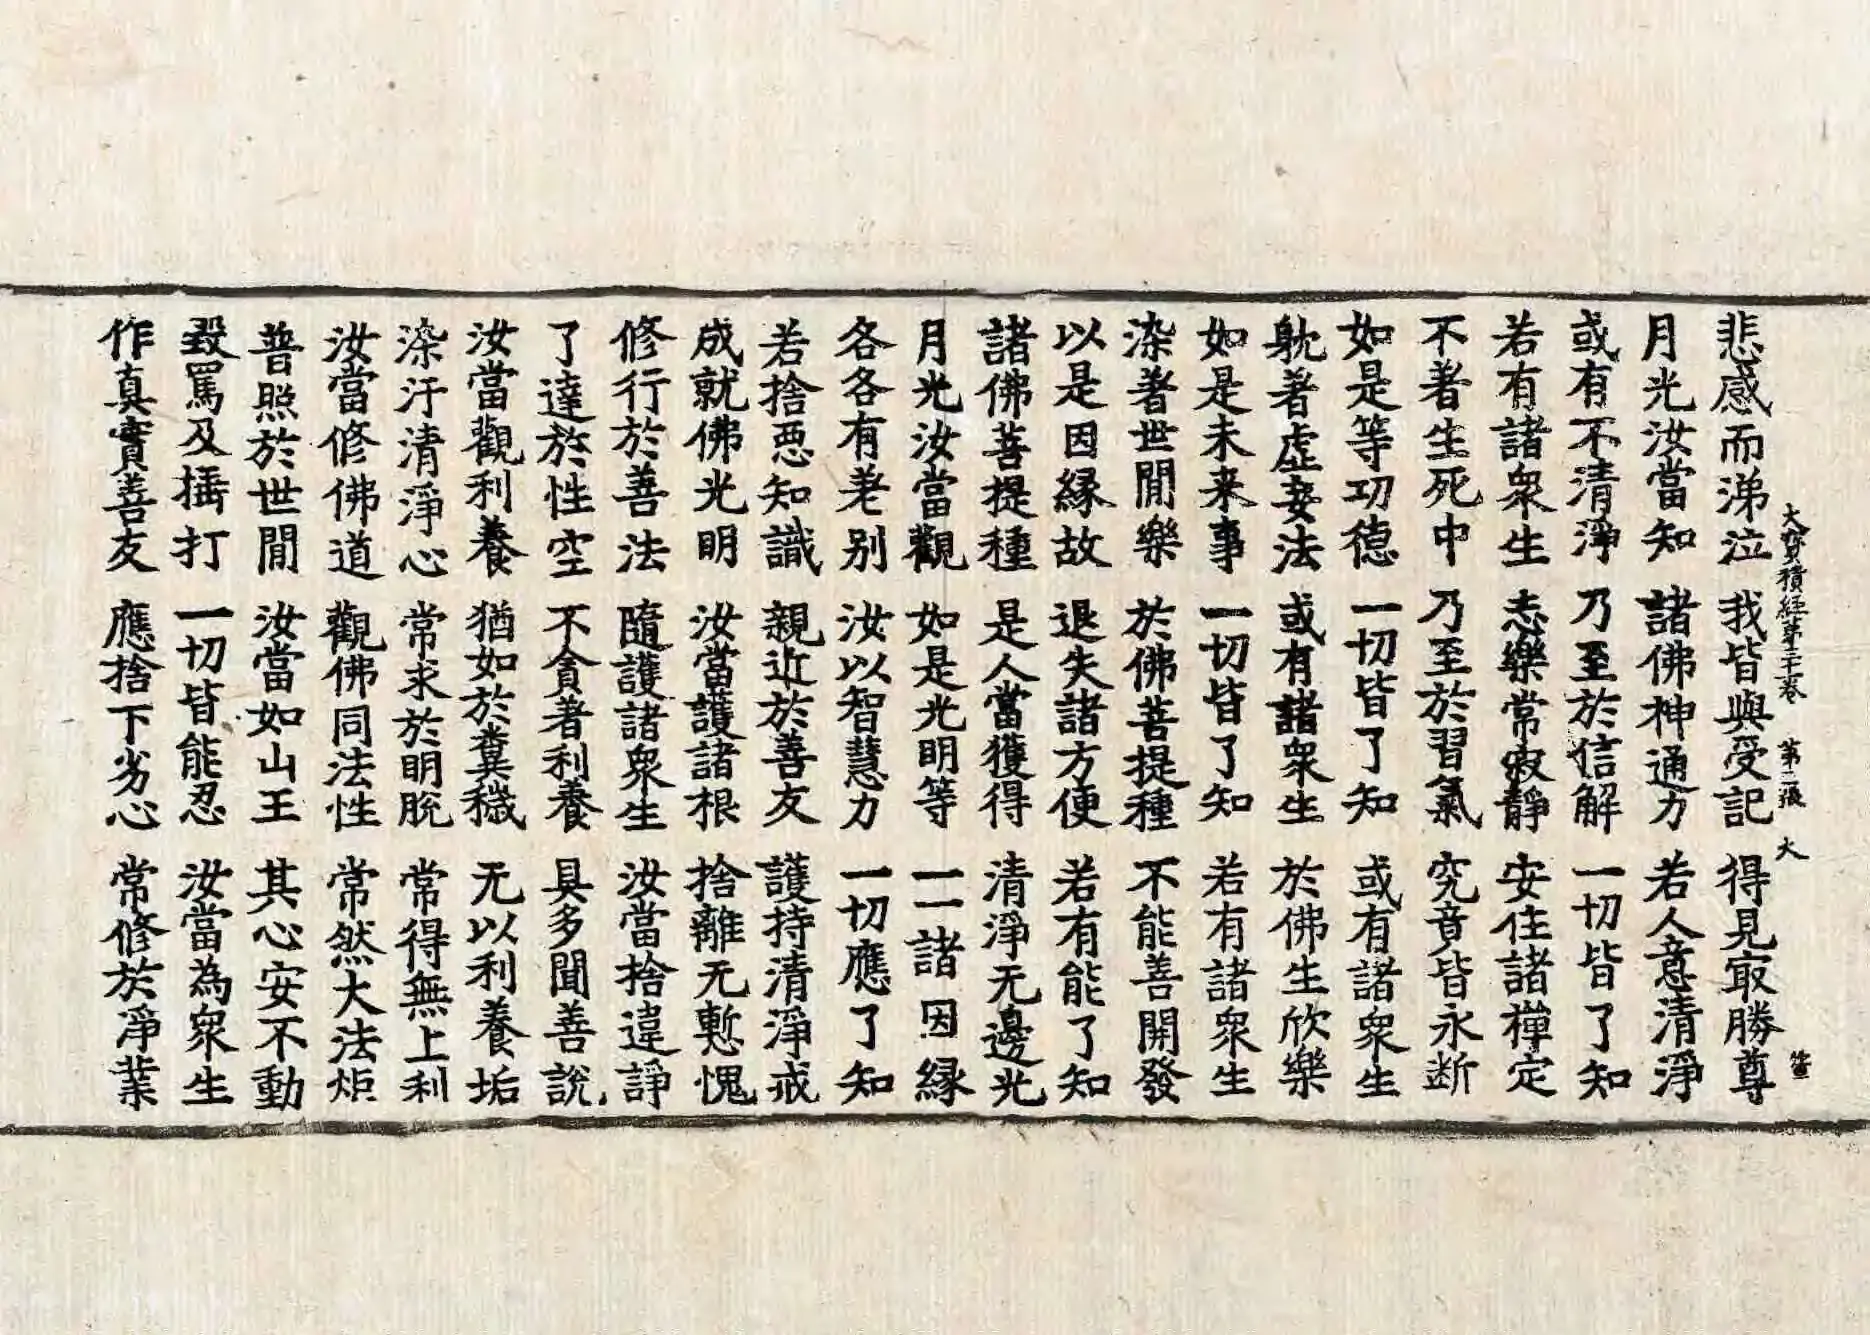 大寳積経第三十卷 第二張 大
悲感而涕泣 我皆與受記 得見㝡勝尊
月光汝當知 諸佛神通力 若人意清淨
或有不清淨 乃至於信解 一切皆了知
若有諸衆生 志樂常寂靜 安住諸禪定
不著生死中 乃至於習氣 究竟皆永断
如是等功德 一切皆了知 或有諸衆生
躭著虛妄法 或有諸衆生 於佛生欣樂
如是未来事 一切皆了知 若有諸衆生
染著世間樂 於佛菩提種 不能善開發
以是因緣故 退失諸方便 若有能了知
諸佛菩提種 是人當獲得 清淨无邊光
月光汝當觀 如是光明等 一一諸因緣
各各有差别 汝以智慧力 一切應了知
若捨惡知識 親近於善友 護持清淨戒
成就佛光明 汝當護諸根 捨離无慙愧
修行於善法 隨護諸衆生 汝當捨違諍
了達於性空 不貪著利養 具多聞善說
汝當觀利養 猶如於糞穢 无以利養垢
染汙清淨心 常求於明脫 常得無上利
汝當修佛道 觀佛同法性 常然大法炬
普照於世間 汝當如山王 其心安不動
毀罵及捶打 一切皆能忍 汝當為衆生
作真實善友 應捨下劣心 常修於淨業